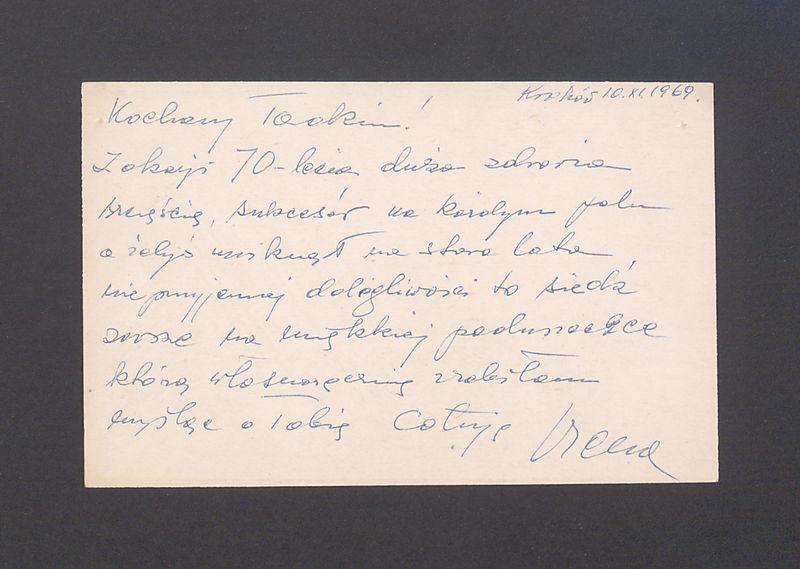 Kraków 10.XI.1969.
Kochany Joakim!
Z okazji 70-lecia dużo zdrowia
szczęścia, sukcesów na każdym polu
a żebyś uniknął na stare lata
nieprzyjemnej dolegliwości to siedź
zawsze na miękkiej poduszeczce
którą własnoręcznie zrobiłam
myśląc o Tobie Całuję Irena